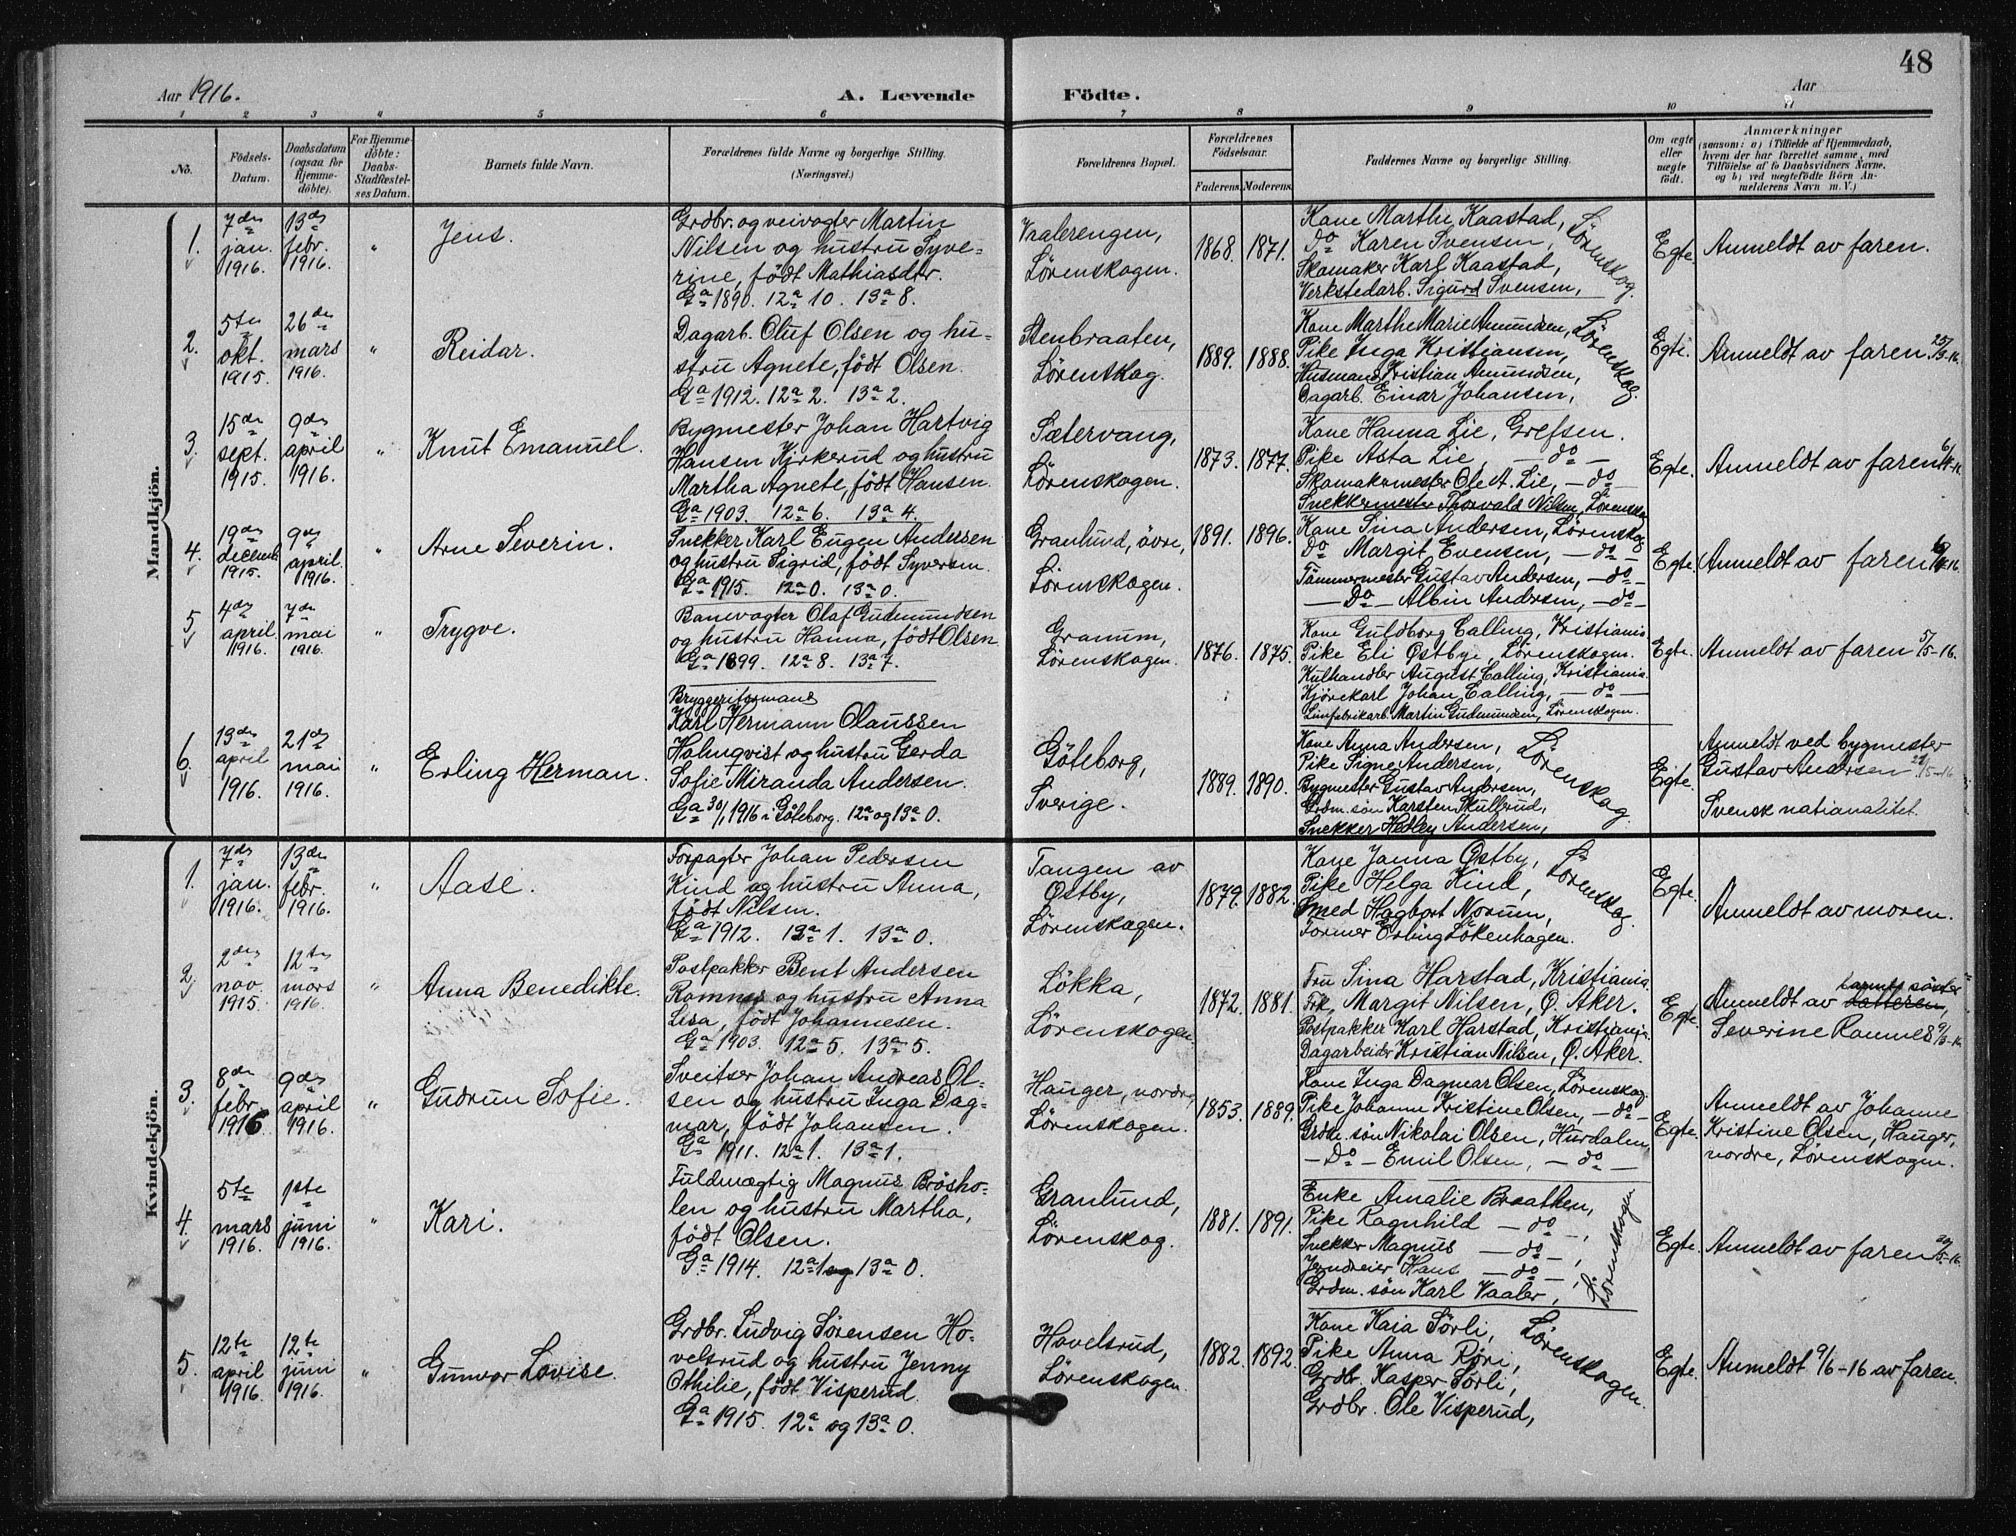 48
Aar 1916.
A. Levende Födte.
Aar
1 2 3 4 5 6 7 8 9 10 11
No.
Födsels-
Datum.
Daabsdatum
(ogsaa for
Hjemme-
döbte).
For Hjemme-
döbte:
Daabs-
Stadfæstel-
ses Datum.
Barnets fulde Navn.
Forældrenes fulde Navne og borgerlige Stilling.
(Næringsvei.)
Forældrenes Bopæl.
Forældrenes
Födselsaar.
Faderens. Moderens.
Faddernes Navne og borgerlige Stilling.
Om ægte
eller
uægte
födt.
Anmærkninger
(saasom: a) i Tilfælde af Hjemmedaab,
hvem der har forrettet samme, med
Tilföielse af to Daabsvidners Navne,
og b) ved uægtefödte Börn An-
melderens Navn m. V.)
Mandkjön.
1.
7de
jan.
1916.
13de
febr.
1916.
"
Jens.
Grdbr. og veivogter Martin
Nilsen og hustru Syve-
rine, født Mathiasdtr.
Ga 1890. 12a 10. 13a 8.
Vaalerengen,
Lörenskogen.
1868. 1871.
Kone Marthe Kaastad,
Do Karen Svensen,
Skomaker Karl Kaastad,
Verkstedarb. Sigurd Svensen,
Lörenskog.
Egte.
Anmeldt av faren.
2.
5te
okt.
1915.
26de
mars
1916.
"
Reidar.
Dagarb. Oluf Olsen og hu-
stru Agnete, født Olsen.
Ga 1912. 12a 2. 13a 2.
Stenbraaten,
Lörenskog.
1889. 1888.
Kone Marthe Marie Amundsen,
Pike Inga Kristiansen,
Husmand Kristian Amundsen,
Dagarb. Einar Johansen,
Lörenskog.
Egte.
Anmeldt av faren 25/3-16.
3.
15de
sept.
1915.
9de
april
1916.
"
Knut Emanuel.
Bygmester Johan Hartvig
Hansen Kjrkerud og hustru
Martha Agnete, født Hansen.
Ga 1903. 12a 6. 13a 4.
Sætervang,
Lörenskogen.
1873. 1877.
Kone Hanna Lie, Grefsen.
Pike Asta Lie, — do —
Skomakermester Ole A. Lie, — do —
Snekkermester Thorvald Nilsen, Lörenskog
Egte.
Anmeldt av faren 6/4-16.
4.
19de
decemb.
1915.
9de
april.
1916.
"
Arne Severin.
Snekker Karl Eugen Andersen
og hustru Sigrid, født Syversen.
Ga 1915. 12a 0. 13a 0.
Granlund, övre,
Lörenskogen.
1891. 1896.
Kone Lina Andersen, Lörenskog
Do Margit Evensen, — do —
Tömmermester Gustav Andersen, — do —
— Do — Albin Andersen, — do —
Egte.
Anmeldt av faren
5.
4de
april.
1916.
7de
mai
1916.
"
Trygve.
Banevogter Olaf Gudmundsen
og hustru Hanna, født Olsen.
Ga 1899. 12a 8. 13a 7.
Granum,
Lörenskogen.
1876. 1875.
Kone Guldborg Calling, Kristiania.
Pike Eli Østbye, Lörenskogen.
Kulhandler August Calling, Kristiania.
Kjörekarl Johan Calling, — do —
Limfabrikarb. Martin Gudmundsen, Lörenskogen.
Egte.
Anmeldt av faren 5/5-16.
6.
13de
april
1916.
21de
mai
1916.
"
Erling Herman.
Bryggeriformand
Karl Hermann Olaussen
Holmqvist og hustru Gerda
Sofie Miranda Andersen.
Ga 30/1 1916 i Göteborg. 12a og 13a 0.
Göteborg,
Sverige.
1889. 1890.
Kone Anna Andersen,
Pike Signe Andersen,
Bygmester Gustav Andersen,
Grdm. søn Karsten Skullerud,
Snekker Hedley Andersen,
Lörenskog.
Egte.
Anmeldt ved bygmester
Gustav Andersen 21/5-16
Svensk nationalitet.
Kvindekjön.
1.
7de
jan.
1916.
13de
febr.
1916.
"
Aase.
Forpagter Johan Pedersen
Kind og hustru Anna,
født Nilsen.
Ga 1912. 12a 1. 13a 0.
Tangen av
Østby,
Lörenskogen.
1879. 1882.
Kone Janna Østby,
Pike Helga Kind,
Smed Hagbart Norum,
Former Erling Lökenhagen.
Lörenskog.
Egte.
Anmeldt av moren.
2.
2den
nov.
1915.
12te
mars
1916.
"
Anna Benedikte.
Postpakker Bent Andersen
Romnes og hustru Anna
Lisa, født Johannesen.
Ga 1903. 12a 5. 13a 5.
Lökka,
Lörenskogen.
1872. 1881.
Fru Lina Harstad, Kristiania.
Frk. Margit Nilsen, Ø. Aker.
Postpakker Karl Harstad, Kristiania.
Dagarbeider Kristian Nilsen, Ø. Aker.
Egte.
barnets söster
Anmeldt av
Severine Romnes 9/3-16.
3.
8de
febr.
1916
9de
april
1916.
"
Gudrun Sofie.
Sveitser Johan Andreas Ol-
sen og hustru Inga Dag-
mar, født Johansen.
Ga 1911. 12a 1. 13a 1.
Hauger, nordre,
Lörenskogen.
1853. 1889.
Kone Inga Dagmar Olsen, Lörenskog.
Pike Johanne Kristine Olsen, — do —
Grdm. søn Nikolai Olsen, Hurdalen,
— Do — Emil Olsen, — do —
Egte.
Anmeldt av Johanne
Kristine Olsen, Hauger,
nordre, Lörenskogen.
4.
5te
mars
1916.
1ste
juni
1916.
"
Kari.
Fuldmægtig Magnus Bråsho-
len og hustru Martha,
født Olsen.
Ga 1914. 12a 1 og 13a 0.
Granlund,
Lörenskog.
1881. 1891.
Enke Amalie Braathen,
Pike Ragnhild — do —,
Snekker Magnus — do —,
Jerndreier Hans — do —,
Grdm. søn Karl Vaaler,
Lörenskogen
Egte.
Anmeldt av faren
5.
12te
april
1916.
12te
juni
1916.
"
Gunvor Lovise.
Grdbr. Ludvig Sørensen Ho-
velsrud og hustru Jenny
Othilie, født Visperud.
Ga 1915. 12a og 13a 0.
Hovelsrud,
Lörenskogen.
1882. 1892.
Kone Kaia Sörli,
Pike Anna Röri,
Grdbr. Kasper Sörli,
Grdbr. Ole Visperud,
Lörenskogen.
Egte.
Anmeldt 9/6-16 av faren.